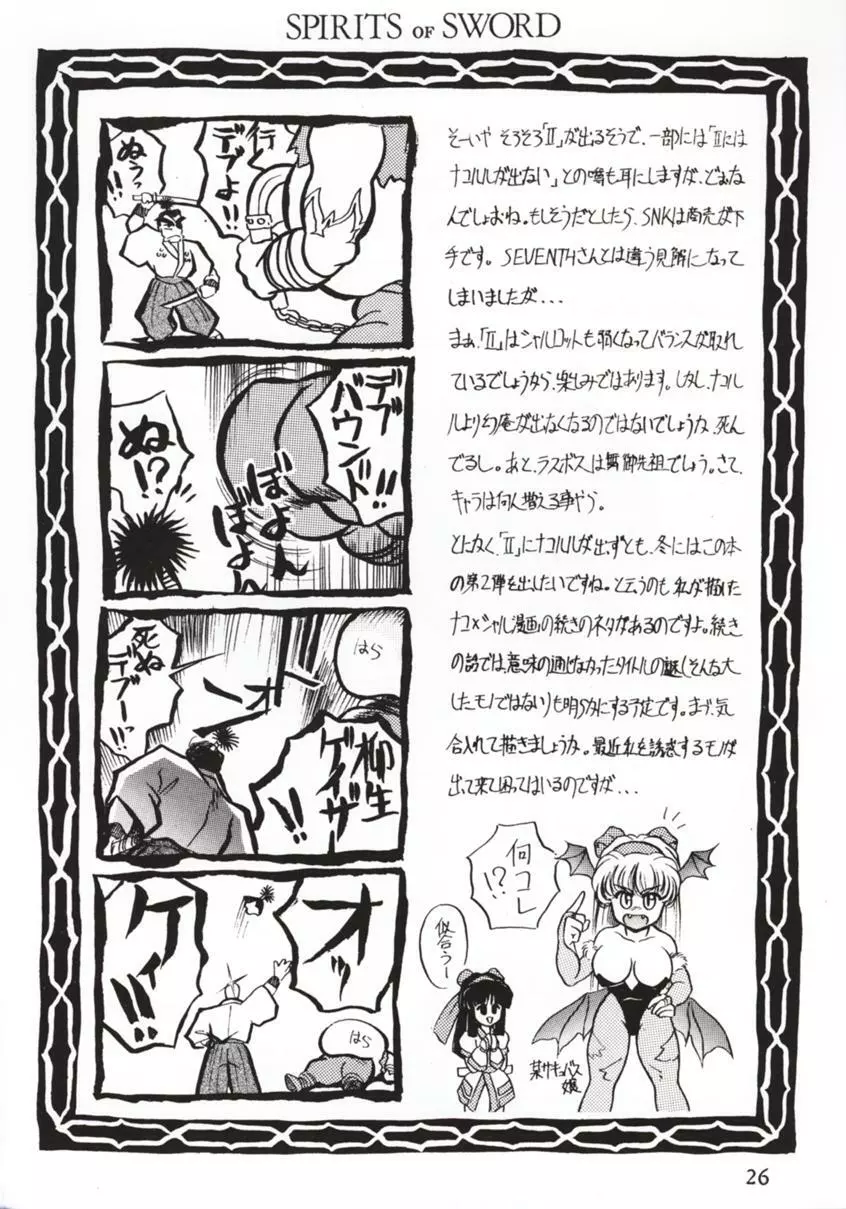 SPIRITS OF SWORD
行くぞ
デブよ
!!
ぬうっ
!!
デブ
バウンド!!
ぼよん
ぼよん
ぬ!?
はら
柳生
ゲイザー
!!
死ぬ
デブー!?
オッ
ケイ!!
はら
そーいや そろそろ「II」が出るそうで、一部には「IIには
ナコルルが出ない」との噂も耳にしますが、どおな
んでしょおね。もしそうだとしたら、SNKは商売が下
手です。SEVENTHさんとは違う見解になって
しまいましたが...
まぁ、「II」はシャルロットも弱くなってバランスが取れ
ているでしょうから、楽しみではあります。しかし、ナコル
ルより幻庵が出なくなるのではないでしょうか、死ん
でるし。あと、ラスボスは舞御先祖でしょう。さて、
キャラは何人増える事やら。
とにかく、「II」にナコルルが出ずとも、冬にはこの本
の第2弾を出したいですね。と云うのも私が描いた
ナコ×シャル漫画の続きのネタがあるのですよ。続き
の話では、意味の通じなかったタイトルの謎(そんな大
したモノではない)も明らかにする予定です。まず、気
合入れて描きましょうか。最近私を誘惑するモノが
出て来て困ってはいるのですが...
何コレ
!?
似合うー
某サキュバス
嬢
26